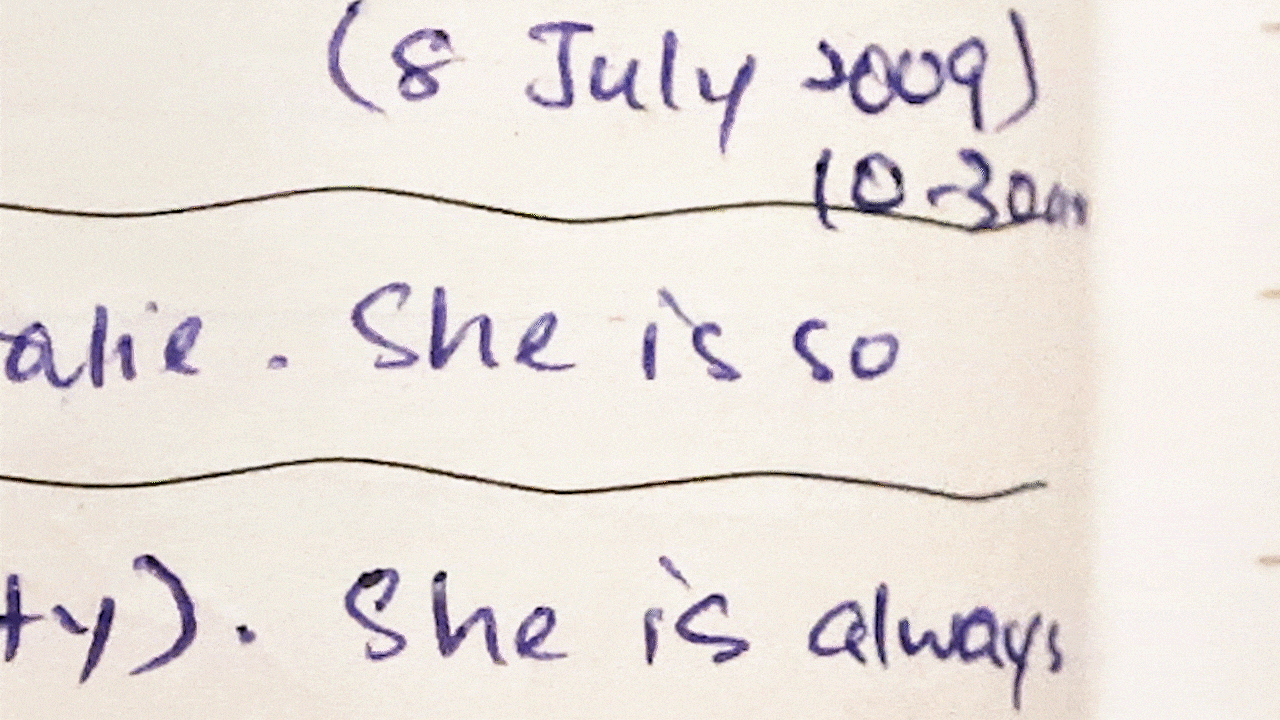 (8 July 2009)
10-30am
alie. She is so
ty). She is always